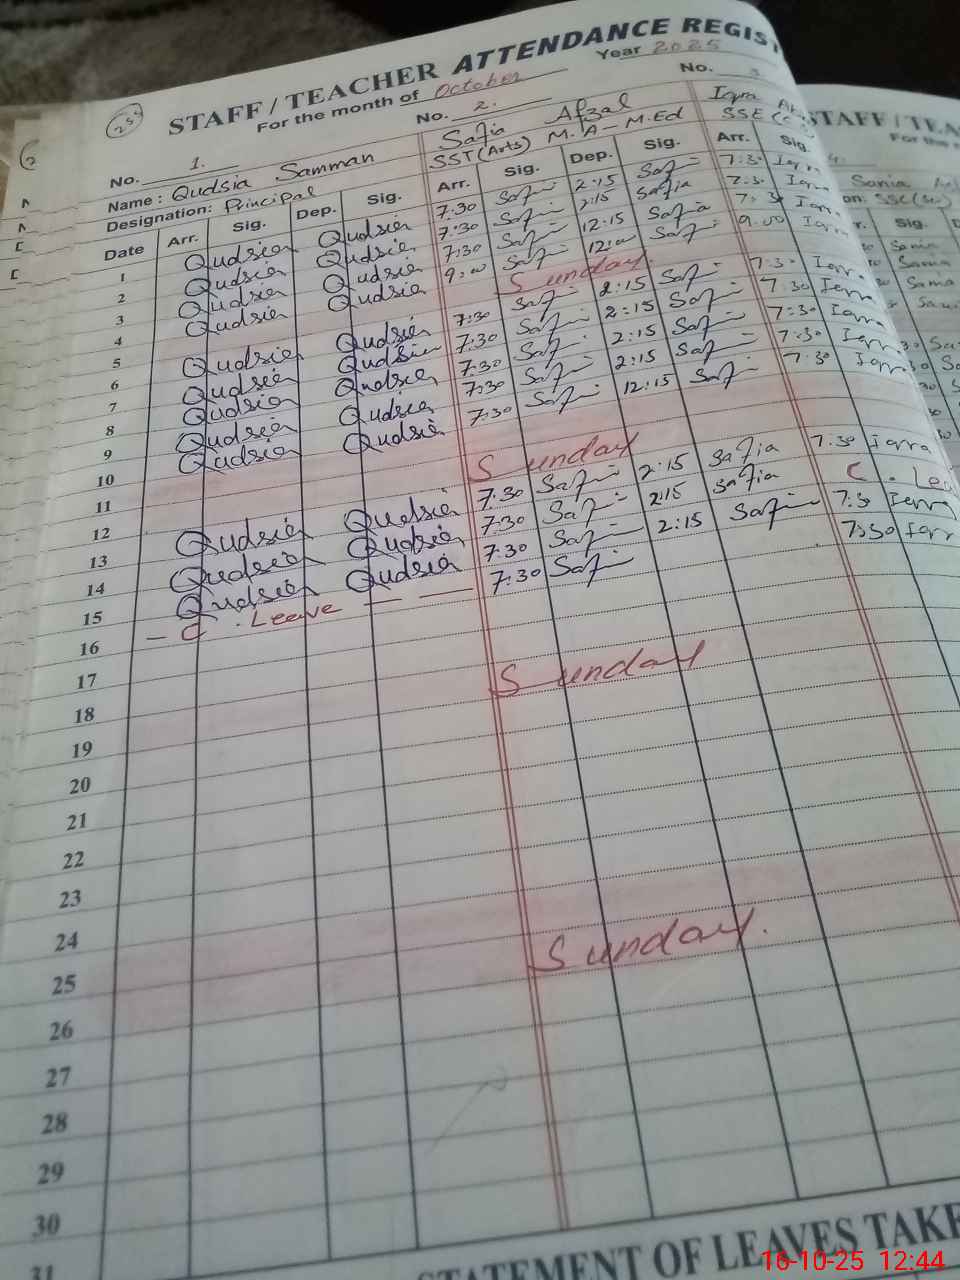 STAFF / TEACHER ATTENDANCE REGIST
For the month of October Year 2025
254
No. 1. No. 2. No. 3
Name : Qudsia Samman Safia Afzal Iqra
Designation: Principal SST (Arts) M.A - M.Ed SSE
Date Arr. Sig. Dep. Sig. Arr. Sig. Dep. Sig. Arr. Sig.
1 Qudsia Qudsia 7:30 Safia 2:15 Safia 7:30 Iqra
2 Qudsia Qudsia 7:30 Safia 2:15 Safia 7:30 Iqra
3 Qudsia Qudsia 7:30 Safia 12:15 Safia 7:30 Iqra
4 Qudsia Qudsia 9:00 Safia 12:00 Safia 9:00 Iqra
5 Sunday
6 Qudsia Qudsia 7:30 Safia 2:15 Safia 7:30 Iqra
7 Qudsia Qudsia 7:30 Safia 2:15 Safia 7:30 Iqra
8 Qudsia Qudsia 7:30 Safia 2:15 Safia 7:30 Iqra
9 Qudsia Qudsia 7:30 Safia 2:15 Safia 7:30 Iqra
10 Qudsia Qudsia 7:30 Safia 12:15 Safia 7:30 Iqra
11
12 Sunday
13 Qudsia Qudsia 7:30 Safia 2:15 Safia 7:30 Iqra
14 Qudsia Qudsia 7:30 Safia 2:15 Safia C. Lea
15 Qudsia Qudsia 7:30 Safia 2:15 Safia 7:30 Iqra
16 — C. Leave — — 7:30 Safia 7:30 Iqra
17
18
19 Sunday
20
21
22
23
24
25
26 Sunday.
27
28
29
30
31
STATEMENT OF LEAVES TAKE
STAFF / TEA
For the
4.
Sania
on: SSE (Sc)
Sig.
Sania
Sania
Sania
16-10-25 12:44